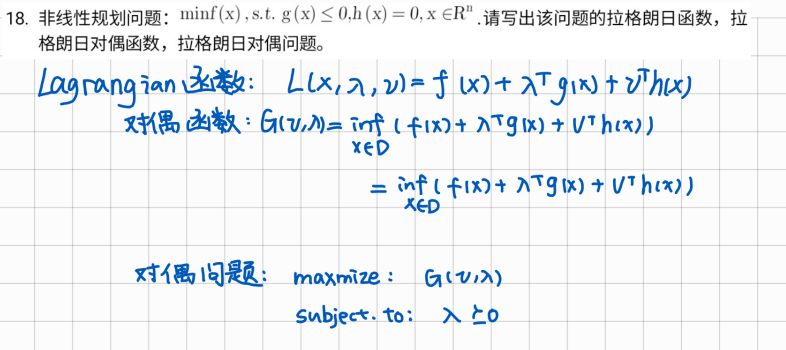 18. 非线性规划问题：minf(x), s.t. g(x) ≤ 0,h(x) = 0, x ∈Rⁿ .请写出该问题的拉格朗日函数，拉
格朗日对偶函数，拉格朗日对偶问题。
Lagrangian函数： L(x, λ, υ) = f(x) + λᵀg(x) + υᵀh(x)
对偶函数：G(υ,λ) = inf (f(x) + λᵀg(x) + υᵀh(x))
x∈D
= inf (f(x) + λᵀg(x) + υᵀh(x))
x∈D
对偶问题： maxmize： G(υ,λ)
subject. to： λ ⪰ 0